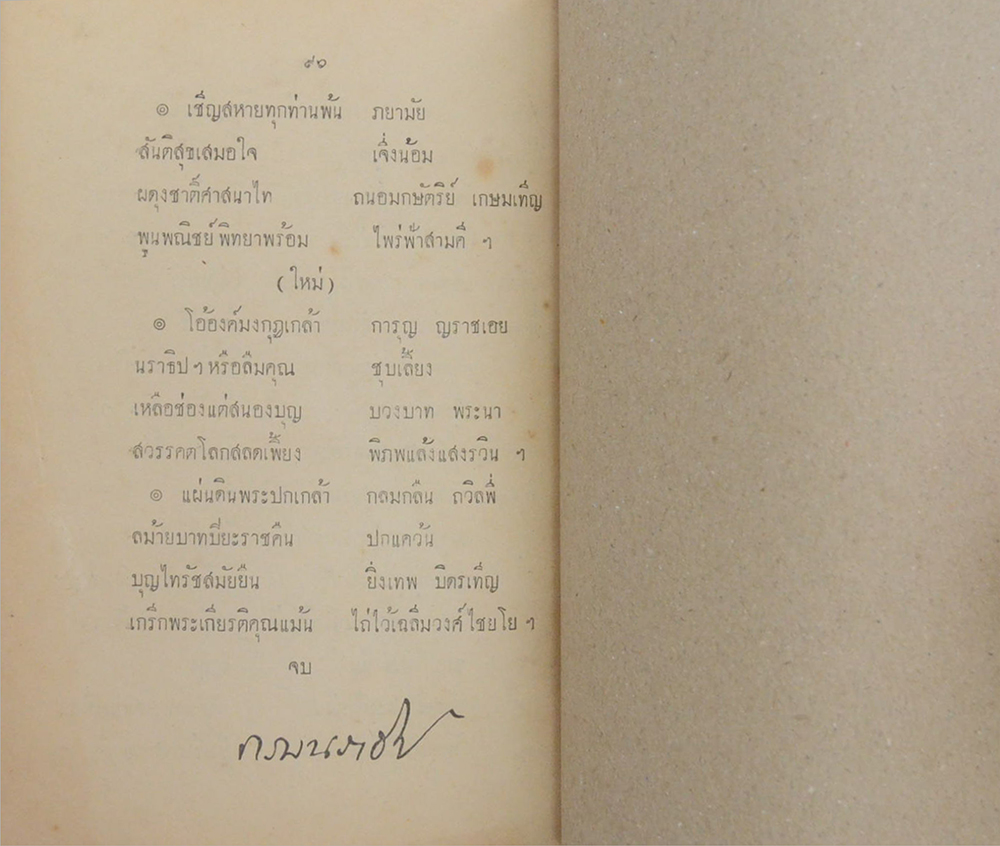 ๙๖
๏ เชิญสหายทุกท่านพ้น ภยามัย
สันติสุขเสมอใจ เจิ่งน้อม
ผดุงชาติ์ศาสนาไท ถนอมกษัตริย์ เกษมเทิญ
พูนพณิชย์ พิทยาพร้อม ไพร่ฟ้าสามคี ฯ
(ใหม่)
๏ โอ้องค์มงกุฎเกล้า การุญ ญราชเอย
นราธิป ฯ หรือลืมคุณ ชุบเลี้ยง
เหลือช่องแต่สนองบุญ บวงบาท พระนา
สวรรคตโลกสลดเพี้ยง พิภพแล้งแสงรวิน ฯ
๏ แผ่นดินพระปกเกล้า กลมกลืน ถวิลพี่
ลม้ายบาทบิ์ยะราชคืน ปกแคว้น
บุญไทรัชสมัยยืน ยิ่งเทพ บิตรเทิญ
เกริกพระเกียรติคุณแม้น ไถ่ไว้เฉลิมวงศ์ ไชยโย ฯ
จบ